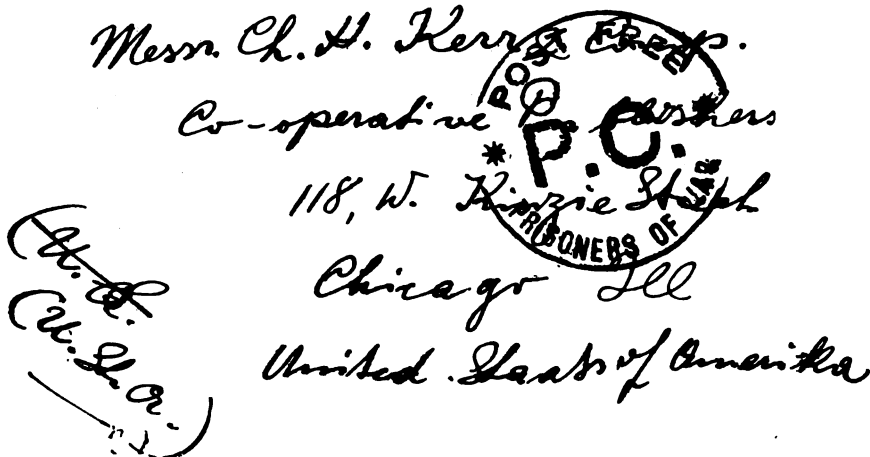 Messr. Ch. H. Kerr & Comp.
Co-operative Publishers
118, W. Kinzie Street
Chicago Ill
United Staats of Amerika
(U. S.
(U. St. A.)
POST FREE
P.C.
PRISONERS OF WAR